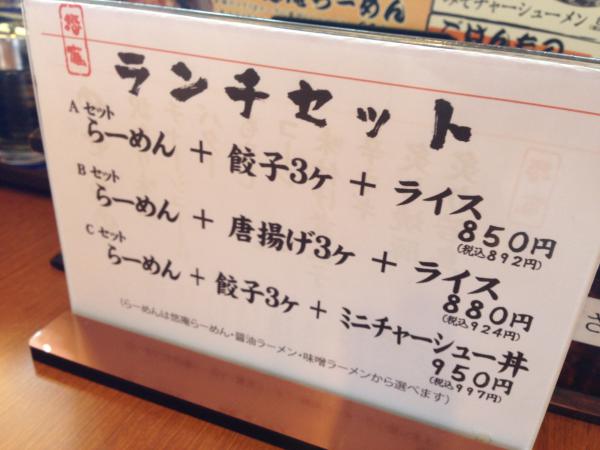 悠庵
ランチセット
A セット
らーめん + 餃子3ヶ + ライス
850円
(税込892円)
B セット
らーめん + 唐揚げ3ヶ + ライス
880円
(税込924円)
C セット
らーめん + 餃子3ヶ + ミニチャーシュー丼
950円
(税込997円)
(らーめんは悠庵らーめん・醤油ラーメン・味噌ラーメンから選べます)
らーめん
チャーシューメン
さ